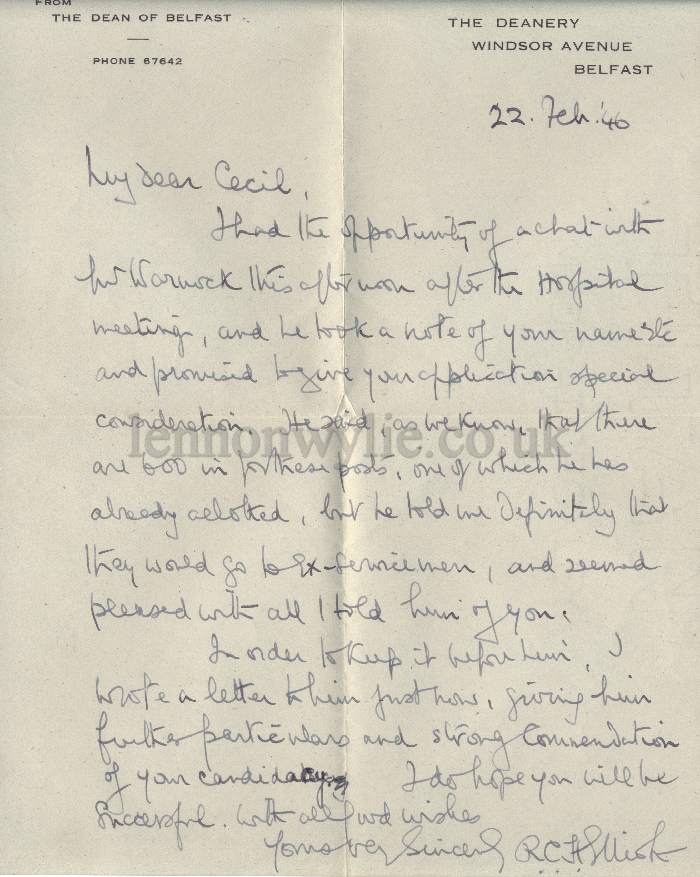 FROM
THE DEAN OF BELFAST
PHONE 67642
THE DEANERY
WINDSOR AVENUE
BELFAST
22. Feb. '46
My dear Cecil,
I had the opportunity of a chat with
Mr Warnock this afternoon after the Hospital
meeting, and he took a note of your name etc
and promised to give your application special
consideration. He said, as we know, that there
are 600 in for these posts, one of which he has
already allotted, but he told me definitely that
they would go to Ex-Servicemen, and seemed
pleased with all I told him of you.
In order to keep it before him, I
wrote a letter to him just now, giving him
further particulars and strong commendation
of your candidacy. I do hope you will be
successful. With all good wishes
Yours very sincerely R.C.H.
lennonwylie.co.uk